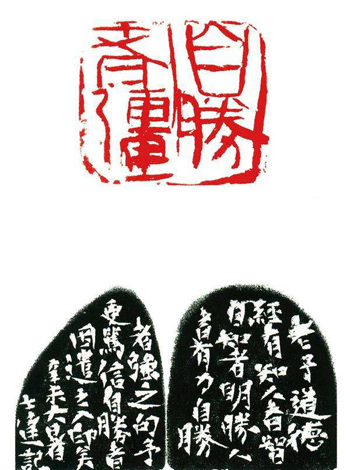 自勝
者彊
老子道德
經有知人者智
自知者明勝人
者有力自勝
者強之句予
更篤信自勝者
因遣人
未大暑
達記